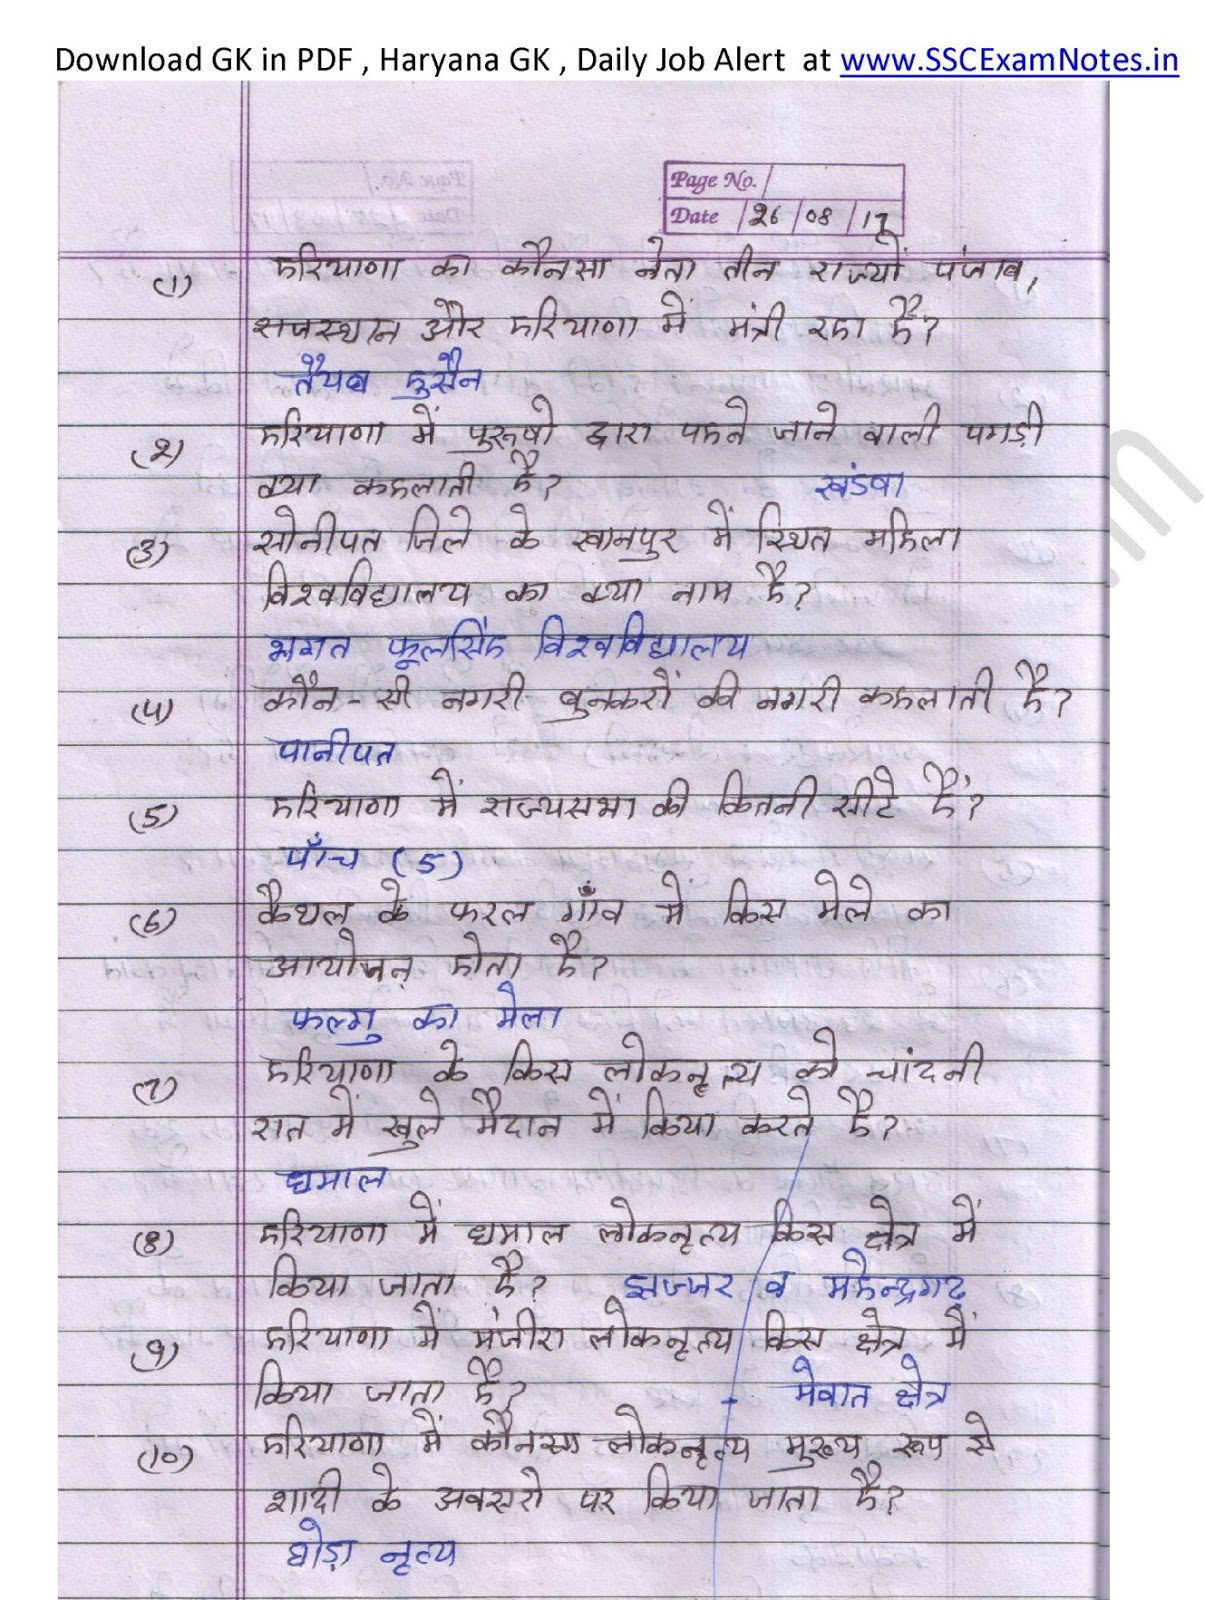 Download GK in PDF , Haryana GK , Daily Job Alert at www.SSCExamNotes.in
Page No.
Date 26/08/17
(1) हरियाणा का कौनसा नेता तीन राज्यों पंजाब,
राजस्थान और हरियाणा में मंत्री रहा है?
तैयब हुसैन
(2) हरियाणा में पुरूषो द्वारा पहने जाने वाली पगड़ी
क्या कहलाती है? खंडवा
(3) सोनीपत जिले के खानपुर में स्थित महिला
विश्वविद्यालय का क्या नाम है?
भगत फूलसिंह विश्वविद्यालय
(4) कौन-सी नगरी बुनकरों की नगरी कहलाती है?
पानीपत
(5) हरियाणा में राज्यसभा की कितनी सीटे हैं?
पाँच (5)
(6) कैथल के फरल गाँव में किस मेले का
आयोजन होता है?
फल्गु का मेला
(7) हरियाणा के किस लोकनृत्य को चांदनी
रात में खुले मैदान में किया करते है?
धमाल
(8) हरियाणा में धमाल लोकनृत्य किस क्षेत्र में
किया जाता है? झज्जर व महेन्द्रगढ़
(9) हरियाणा में मंजीरा लोकनृत्य किस क्षेत्र में
किया जाता है? - मेवात क्षेत्र
(10) हरियाणा में कौनसा लोकनृत्य मुख्य रूप से
शादी के अवसरो पर किया जाता है?
घोड़ा नृत्य